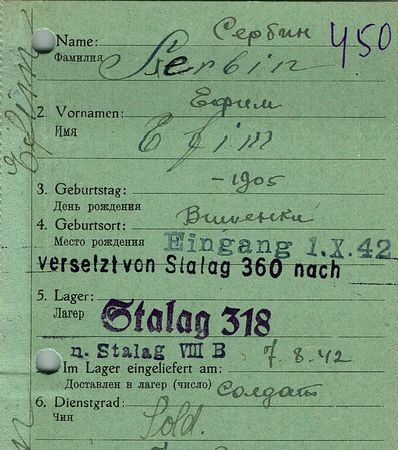 Сербин 450
Name:
Фамилия Serbin
Ефим
2. Vornamen:
Имя Efim
3. Geburtstag: - 1905
День рождения
4. Geburtsort: Вишенки
Место рождения Eingang 1.X.42
versetzt von Stalag 360 nach
5. Lager:
Лагер Stalag 318
n. Stalag VIII B 7.8.42
Im Lager eingeliefert am:
Доставлен в лагер (число) солдат
6. Dienstgrad:
Чин Sold.
Efim